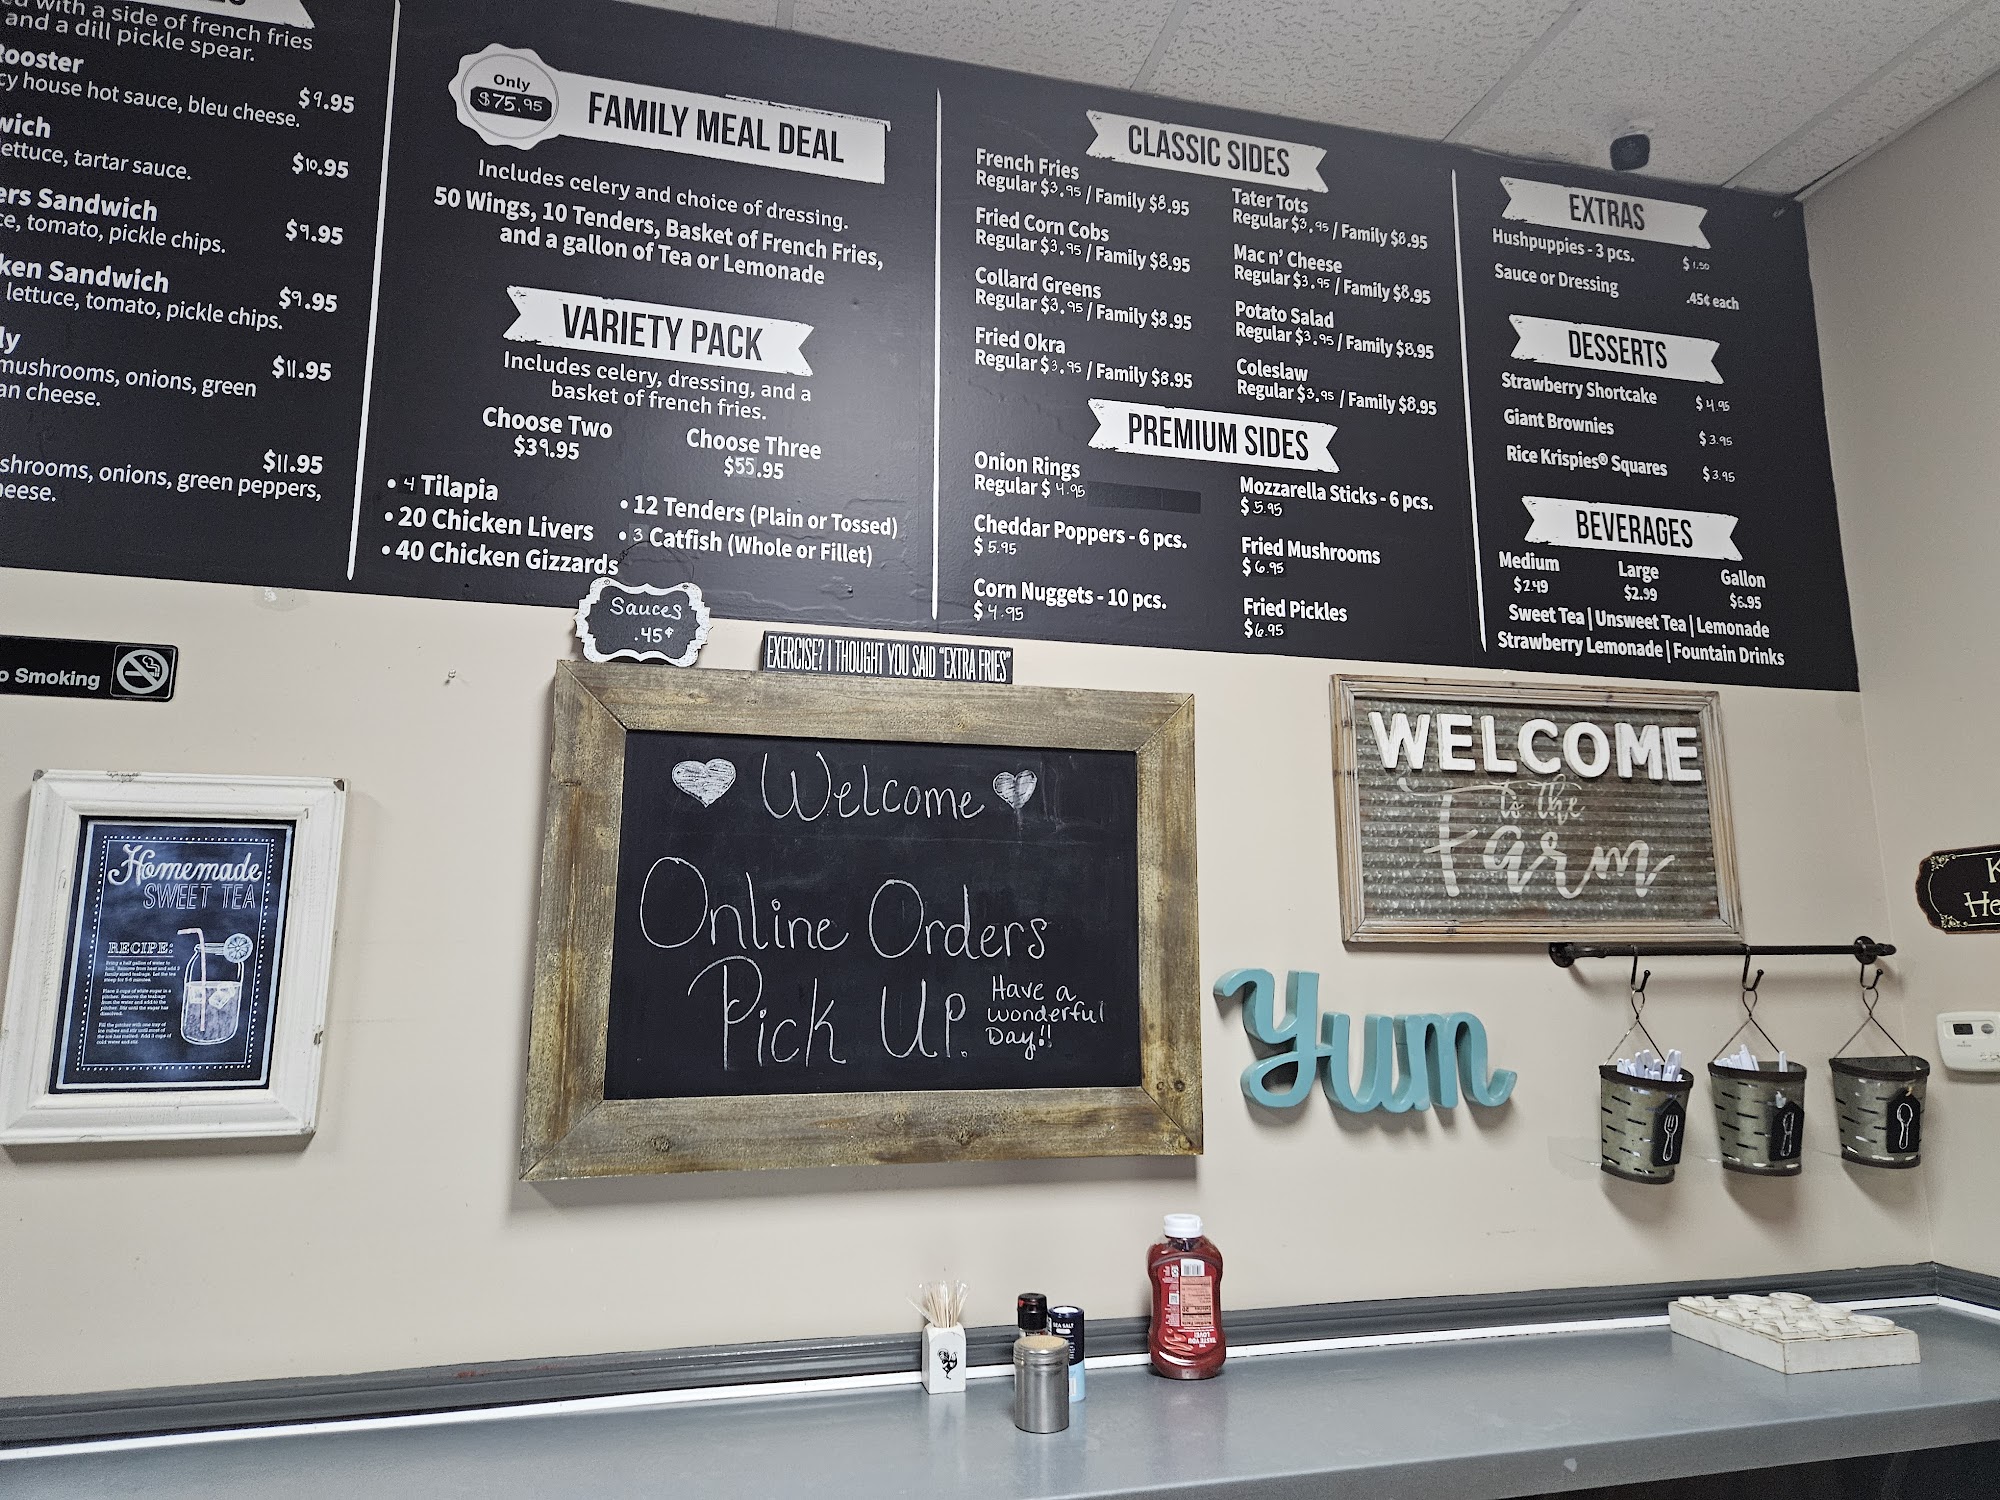 with a side of french fries
and a dill pickle spear.
Rooster
$9.95
house hot sauce, bleu cheese.
$10.95
lettuce, tartar sauce.
Sandwich
$9.95
tomato, pickle chips.
Sandwich
$9.95
lettuce, tomato, pickle chips.
$11.95
mushrooms, onions, green
cheese.
$11.95
onions, green peppers,
Only
$75.95
FAMILY MEAL DEAL
Includes celery and choice of dressing.
50 Wings, 10 Tenders, Basket of French Fries,
and a gallon of Tea or Lemonade
VARIETY PACK
Includes celery, dressing, and a
basket of french fries.
Choose Two
$39.95
Choose Three
$55.95
• 4 Tilapia
• 20 Chicken Livers
• 40 Chicken Gizzards
• 12 Tenders (Plain or Tossed)
• 3 Catfish (Whole or Fillet)
CLASSIC SIDES
French Fries
Regular $3.95 / Family $8.95
Fried Corn Cobs
Regular $3.95 / Family $8.95
Collard Greens
Regular $3.95 / Family $8.95
Fried Okra
Regular $3.95 / Family $8.95
Tater Tots
Regular $3.95 / Family $8.95
Mac n' Cheese
Regular $3.95 / Family $8.95
Potato Salad
Regular $3.95 / Family $8.95
Coleslaw
Regular $3.95 / Family $8.95
PREMIUM SIDES
Onion Rings
Regular $4.95
Cheddar Poppers - 6 pcs.
$5.95
Corn Nuggets - 10 pcs.
$4.95
Mozzarella Sticks - 6 pcs.
$5.95
Fried Mushrooms
$6.95
Fried Pickles
$6.95
EXTRAS
Hushpuppies - 3 pcs.
$1.50
Sauce or Dressing
.45¢ each
DESSERTS
Strawberry Shortcake
$4.95
Giant Brownies
$3.95
Rice Krispies® Squares
$3.95
BEVERAGES
Medium
$2.49
Large
$2.99
Gallon
$6.95
Sweet Tea | Unsweet Tea | Lemonade
Strawberry Lemonade | Fountain Drinks
Sauces
.45¢
EXERCISE? I THOUGHT YOU SAID "EXTRA FRIES"
Smoking
Homemade
SWEET TEA
RECIPE:
Welcome
Online Orders
Pick Up.
Have a
wonderful
Day!!
WELCOME
to the
Farm
Yum
SEA SALT